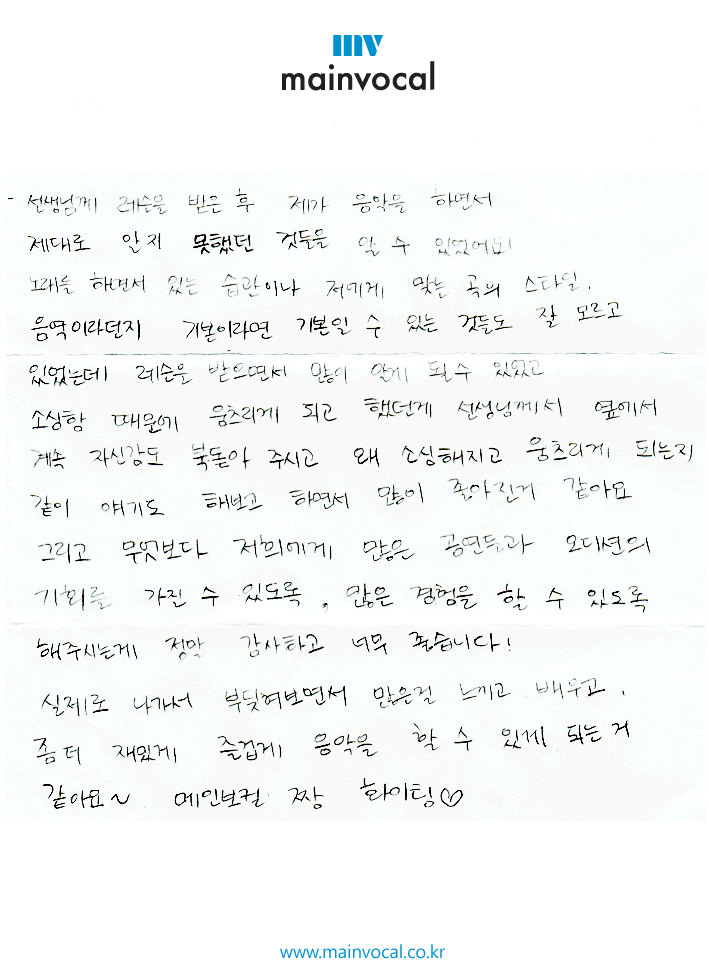 mv
mainvocal
- 선생님께 레슨을 받은 후 제가 음악을 하면서
제대로 알지 못했던 것들을 알 수 있었어요!
노래를 하면서 있는 습관이나 저에게 맞는 곡의 스타일,
음역이라던지 기본이라면 기본일 수 있는 것들도 잘 모르고
있었는데 레슨을 받으면서 많이 알게 될수 있었고
소심함 때문에 웅츠리게 되고 했던게 선생님께서 옆에서
계속 자신감도 북돋아 주시고 왜 소심해지고 웅츠리게 되는지
같이 얘기도 해보고 하면서 많이 좋아진거 같아요
그리고 무엇보다 저희에게 많은 공연들과 오디션의
기회를 가진 수 있도록, 많은 경험을 할 수 있도록
해주시는게 정말 감사하고 너무 좋습니다!
실제로 나가서 부딪혀보면서 많은걸 느끼고 배우고,
좀 더 재밌게 즐겁게 음악을 할 수 있게 되는거
같아요~ 메인보컬 짱 화이팅♡
www.mainvocal.co.kr